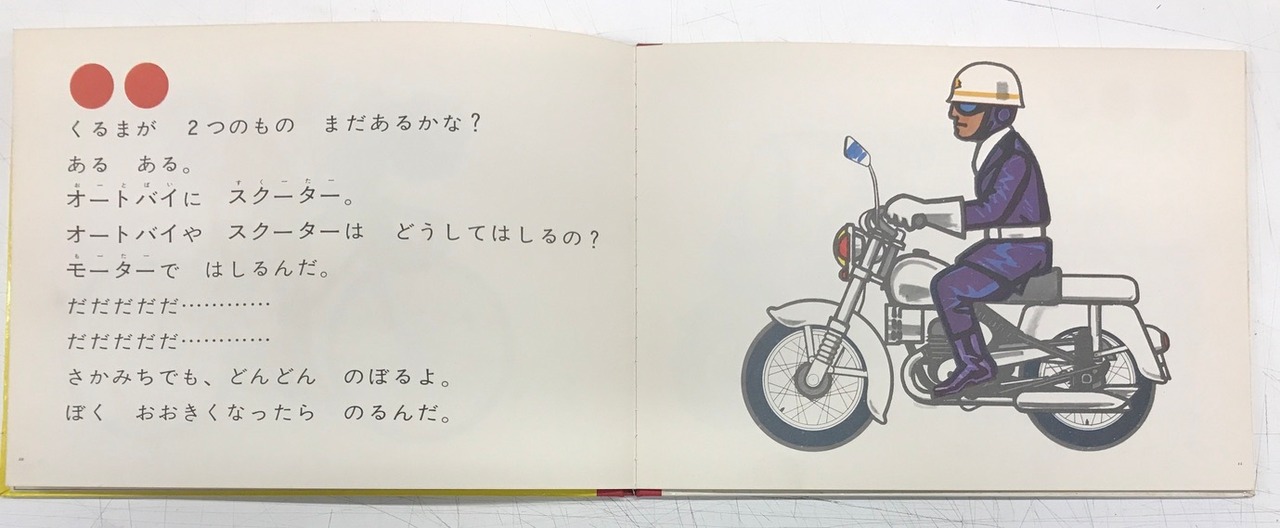 くるまが　2つのもの　まだあるかな?
ある　ある。
オートバイに　スクーター。
オートバイや　スクーターは　どうしてはしるの?
モーターで　はしるんだ。
だだだだだ…………
だだだだだ…………
さかみちでも、どんどん　のぼるよ。
ぼく　おおきくなったら　のるんだ。